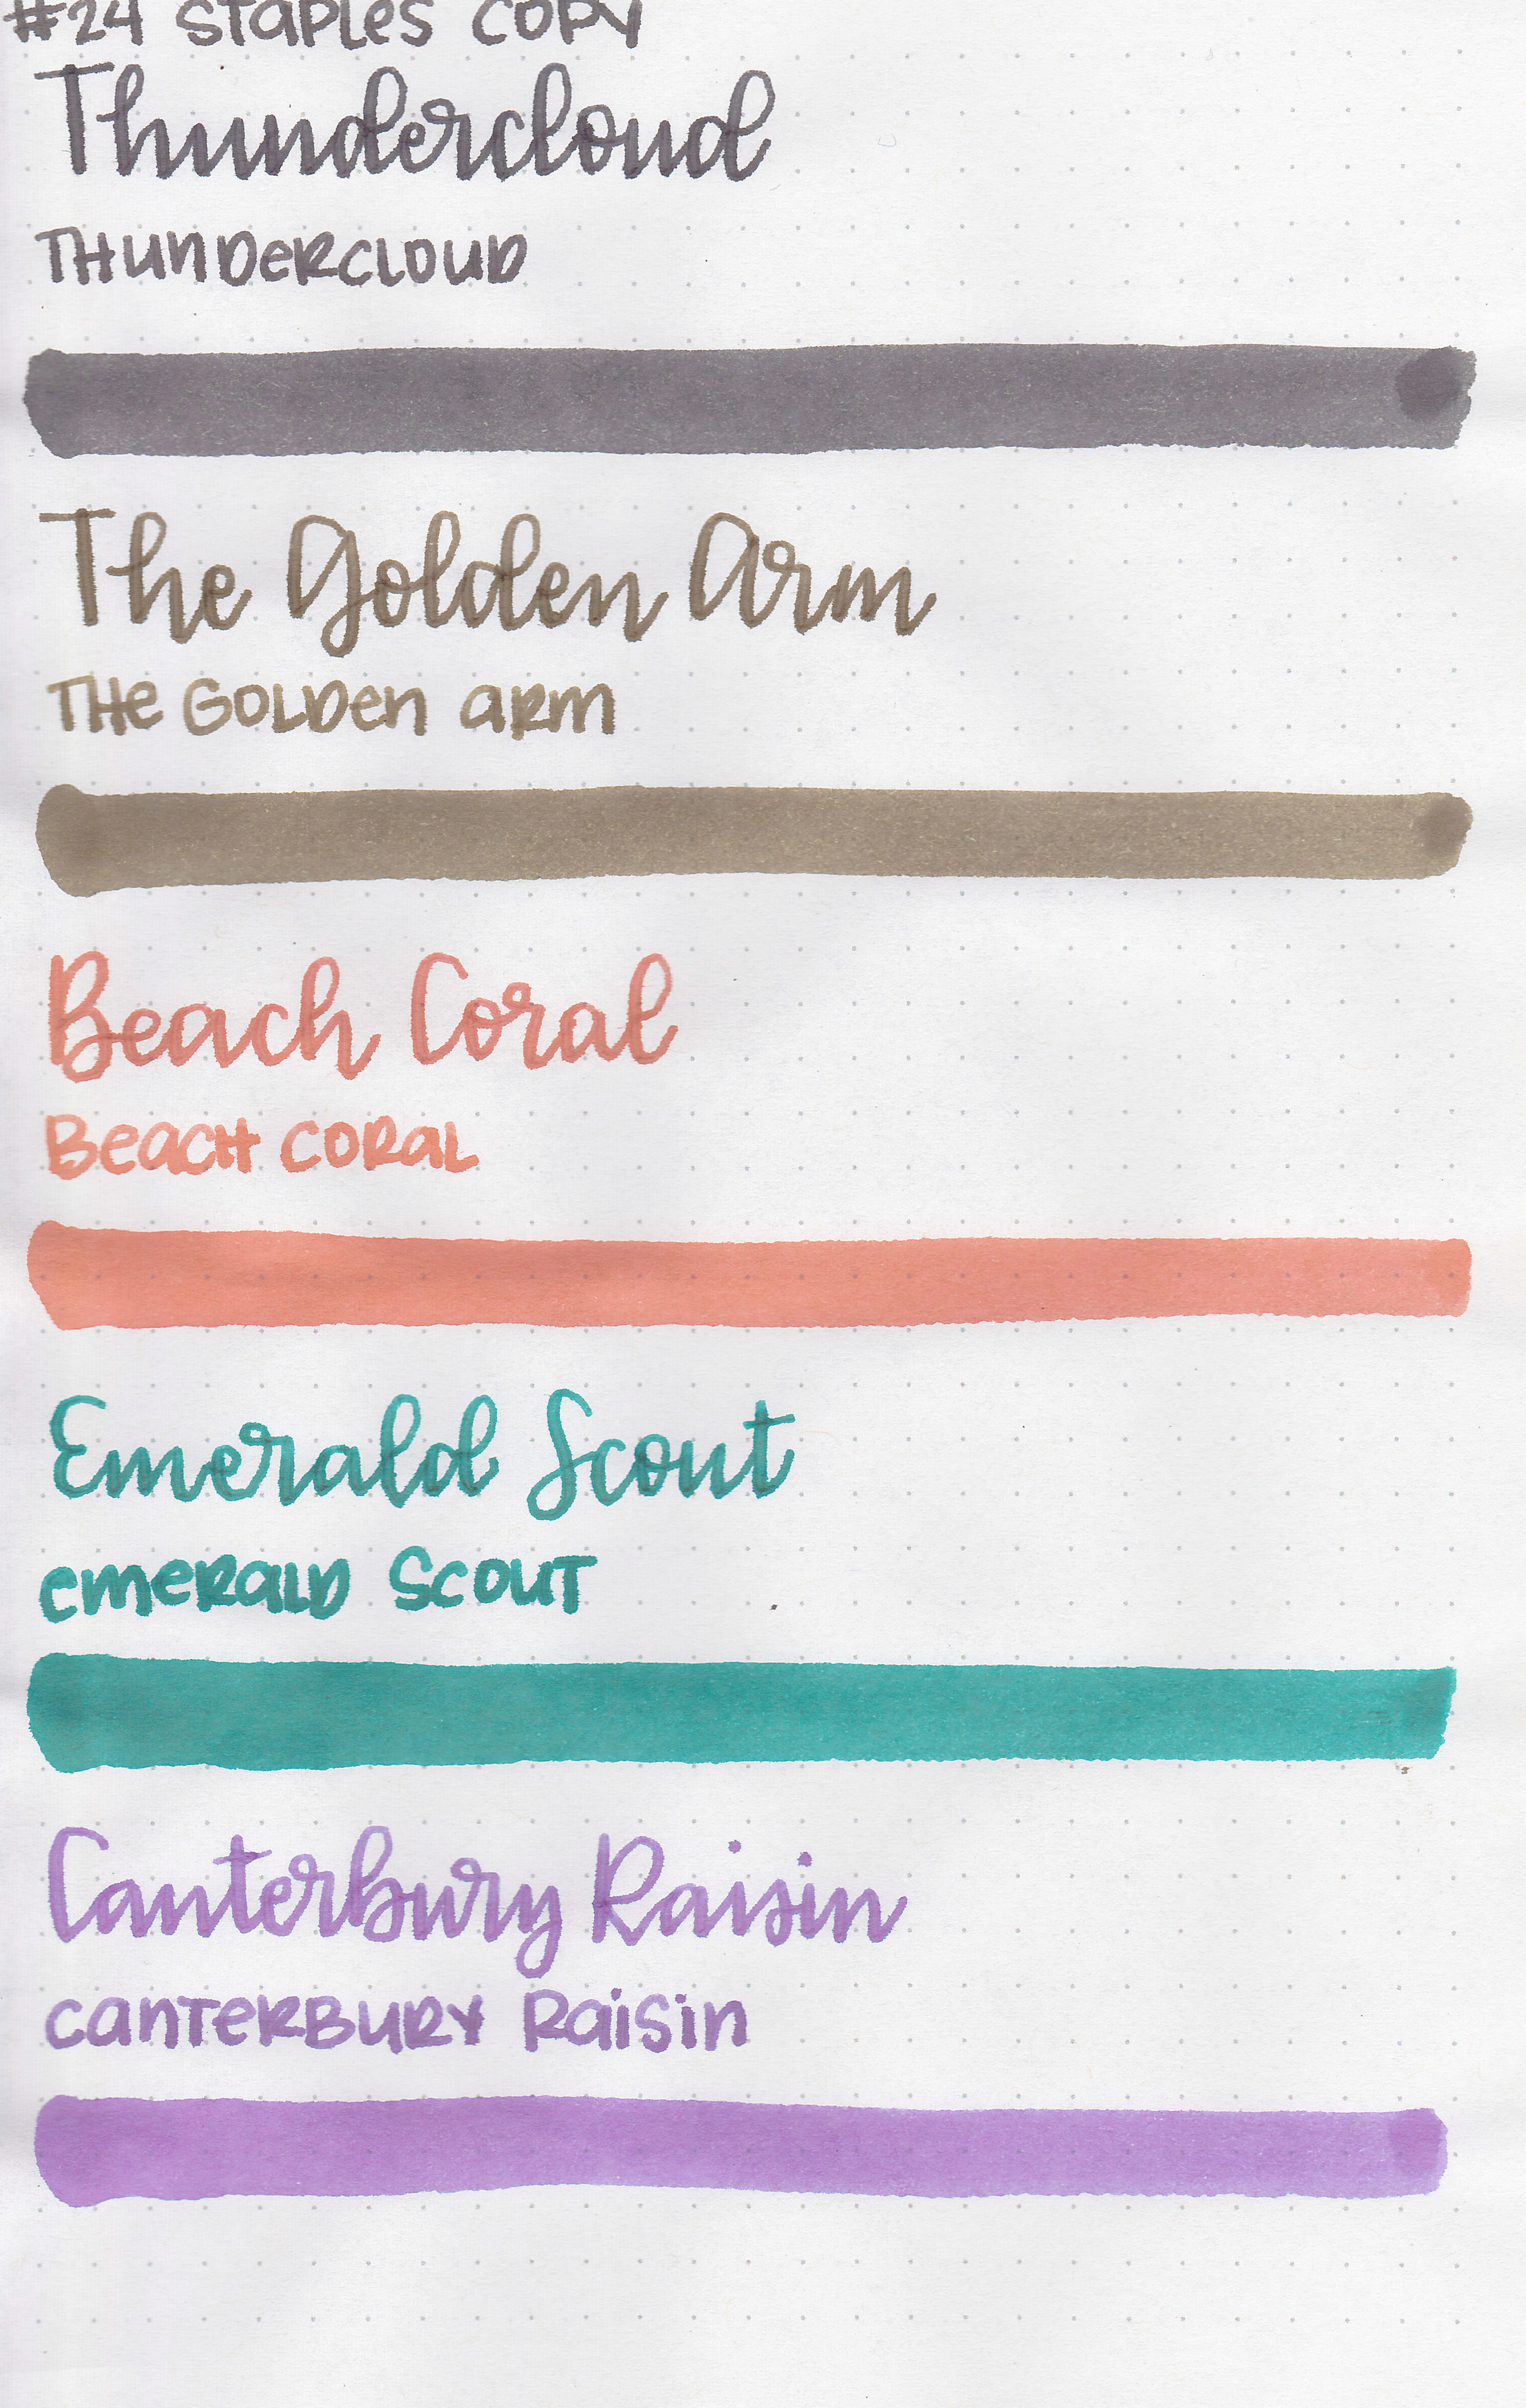 #24 STaPLes COPY
Thundercloud
THunDeRCLOuD
The Golden Arm
THe GOLDen aRm
Beach Coral
BeacH CORaL
Emerald Scout
emeRaLD SCOuT
Canterbury Raisin
CanTeRBuRY RaiSin